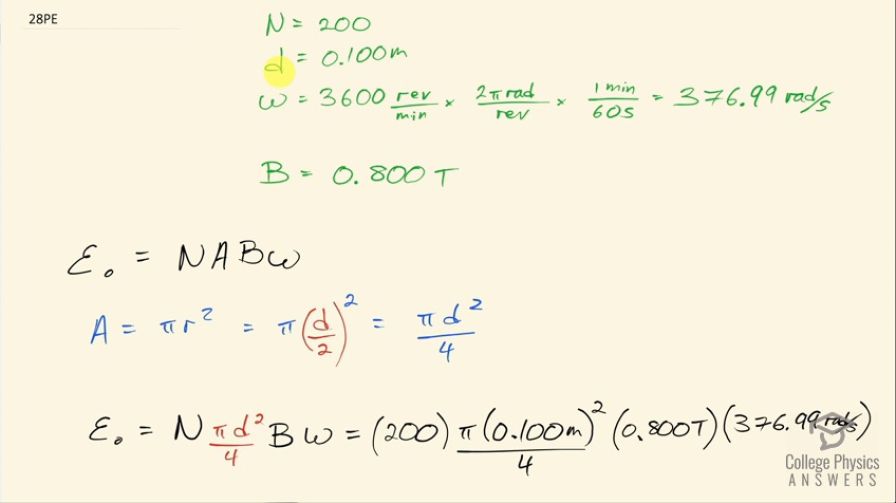 28PE
N = 200
d = 0.100m
ω = 3600 rev/min × 2π rad/rev × 1 min/60s = 376.99 rad/s
B = 0.800 T
ℰ₀ = NABω
A = πr² = π(d/2)² = πd²/4
ℰ₀ = N πd²/4 Bω = (200) π(0.100m)²/4 (0.800T)(376.99 rad/s)
College Physics
ANSWERS